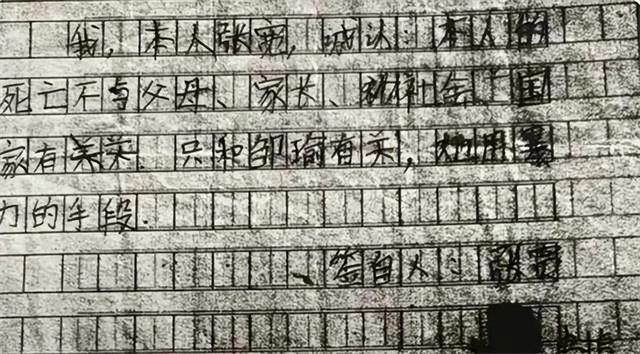 我,本人张宽,诚认:本人的
死亡不与父母、家长、和社会、国
家有关系.只和邹瑜有关,她用暴
力的手段.
签自人:张宽